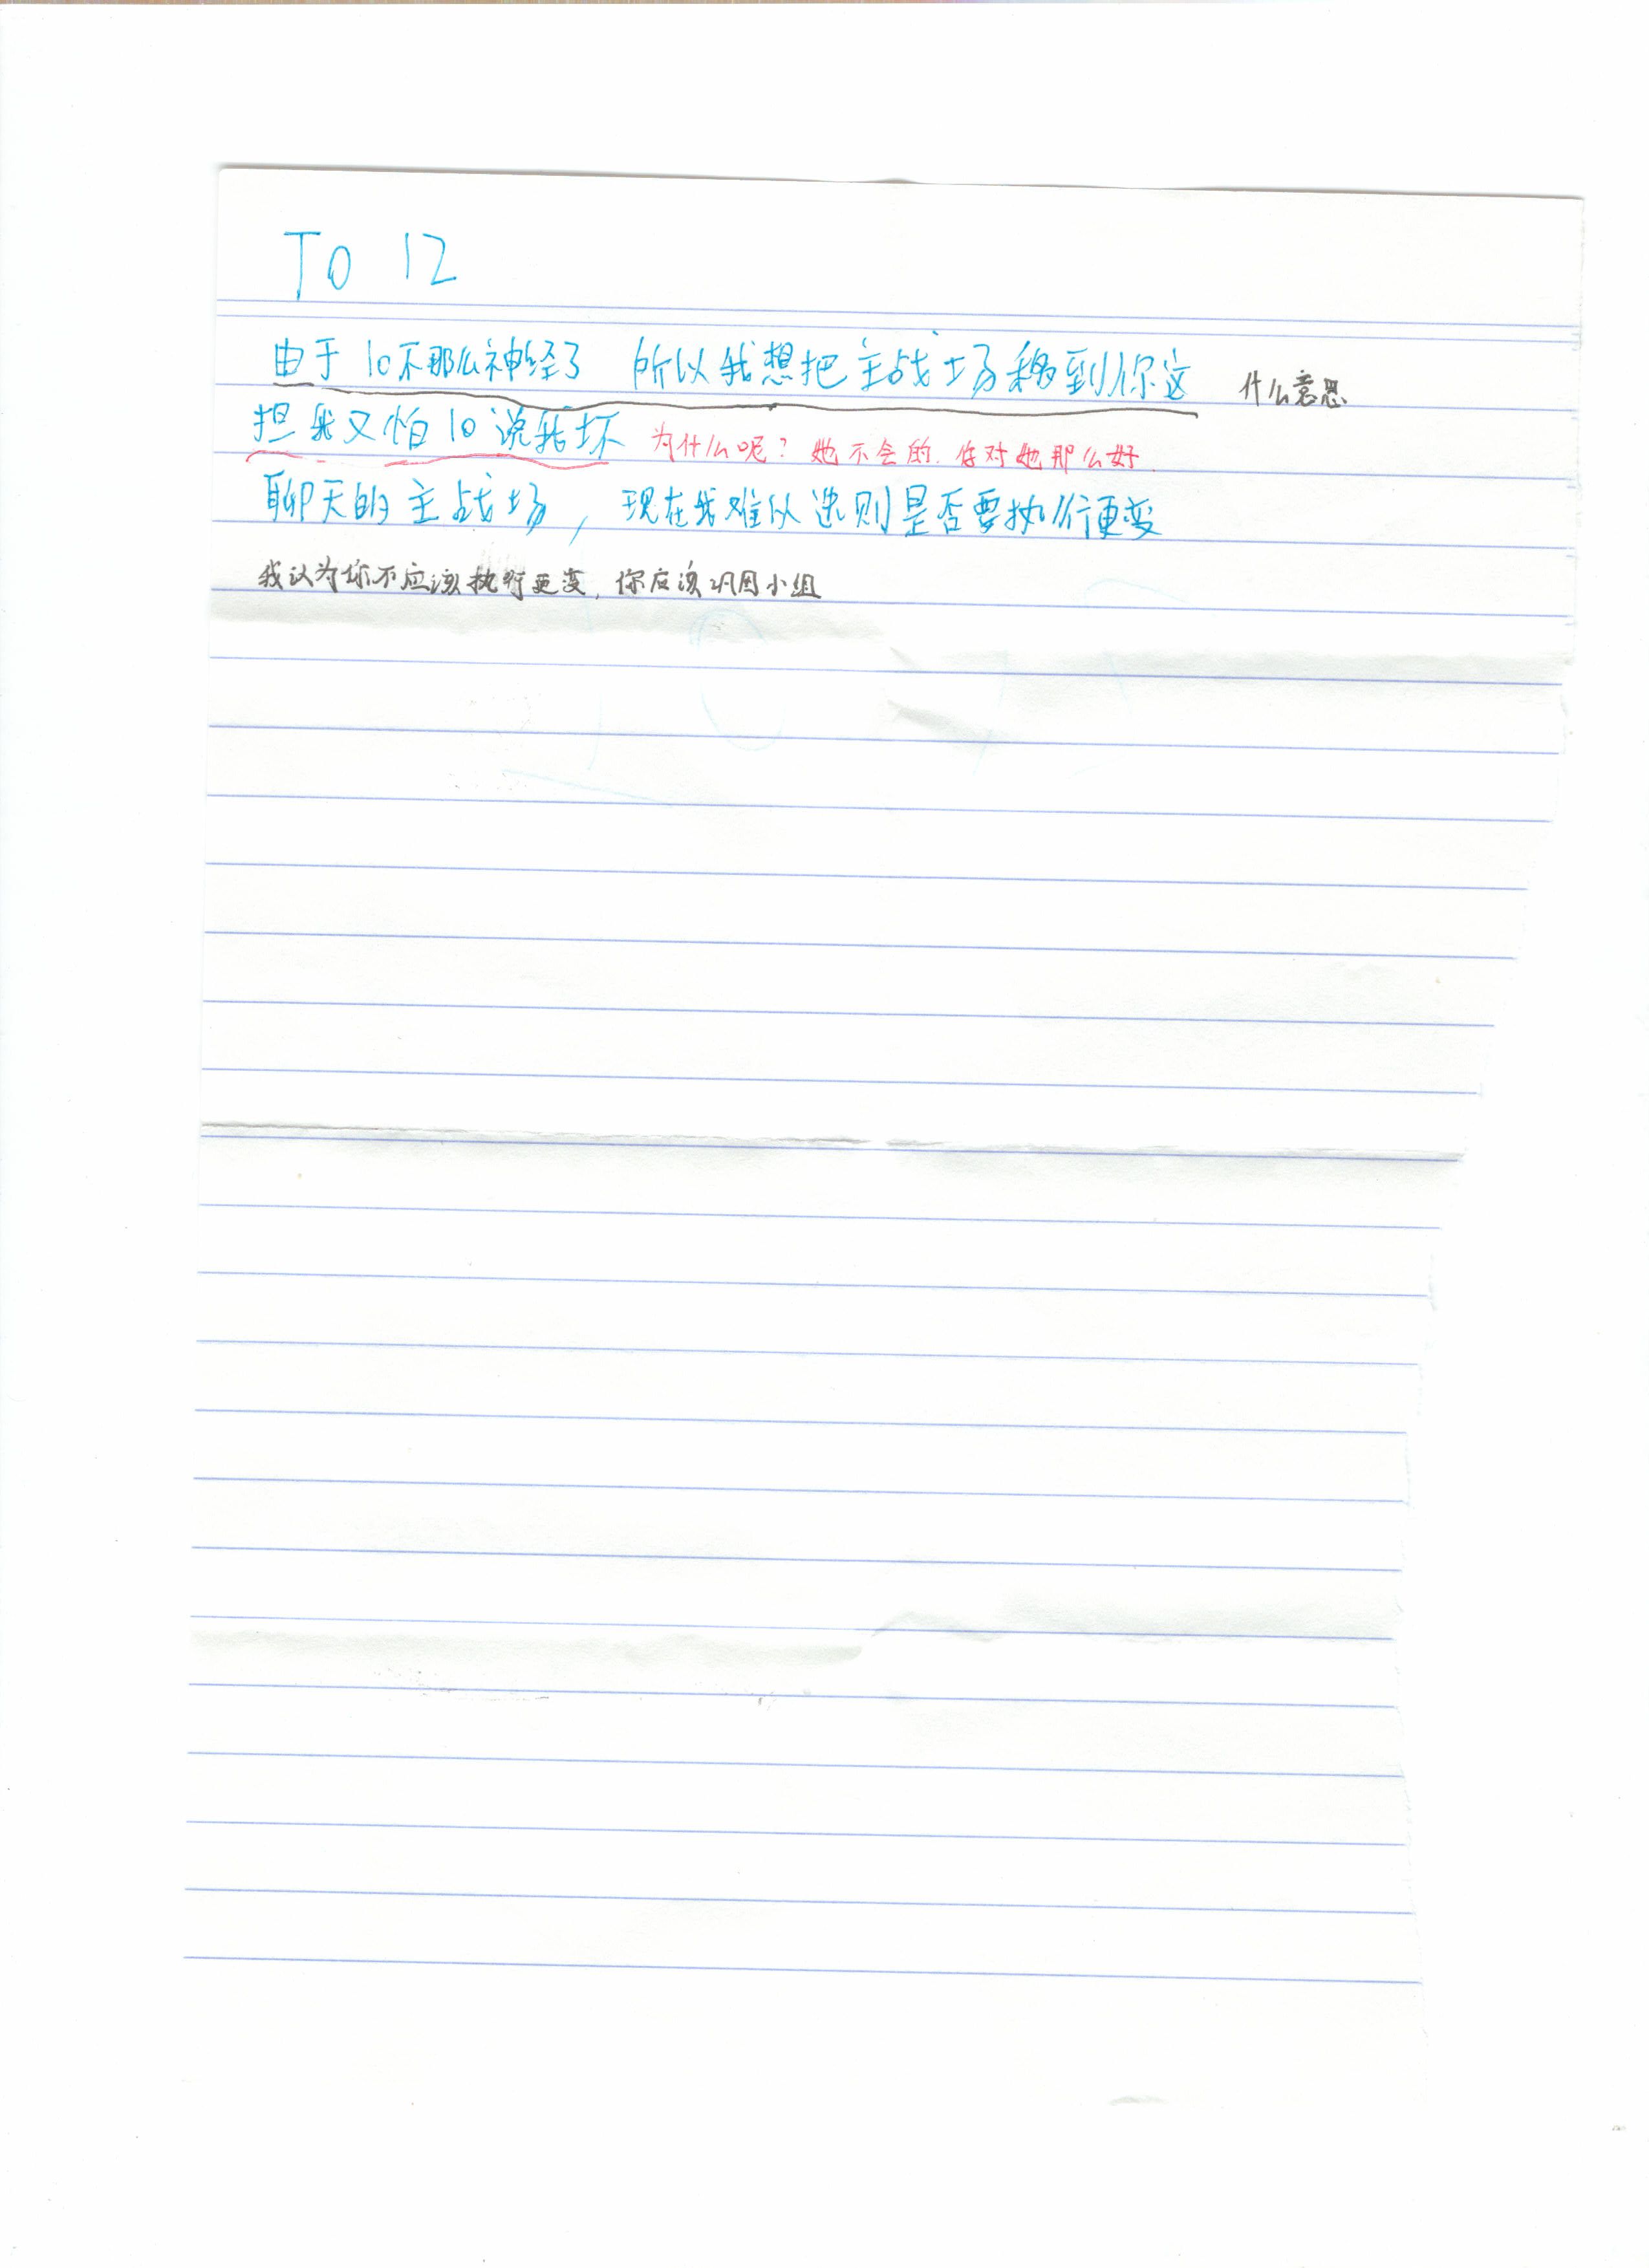 TO 12
由于10不那么神经了 所以我想把主战场移到你这 什么意思
担我又怕10说我坏 为什么呢？她不会的.你对她那么好.
聊天的主战场，现在我难以选则是否要执行更变
我认为你不应该执行更变，你应该巩固小组